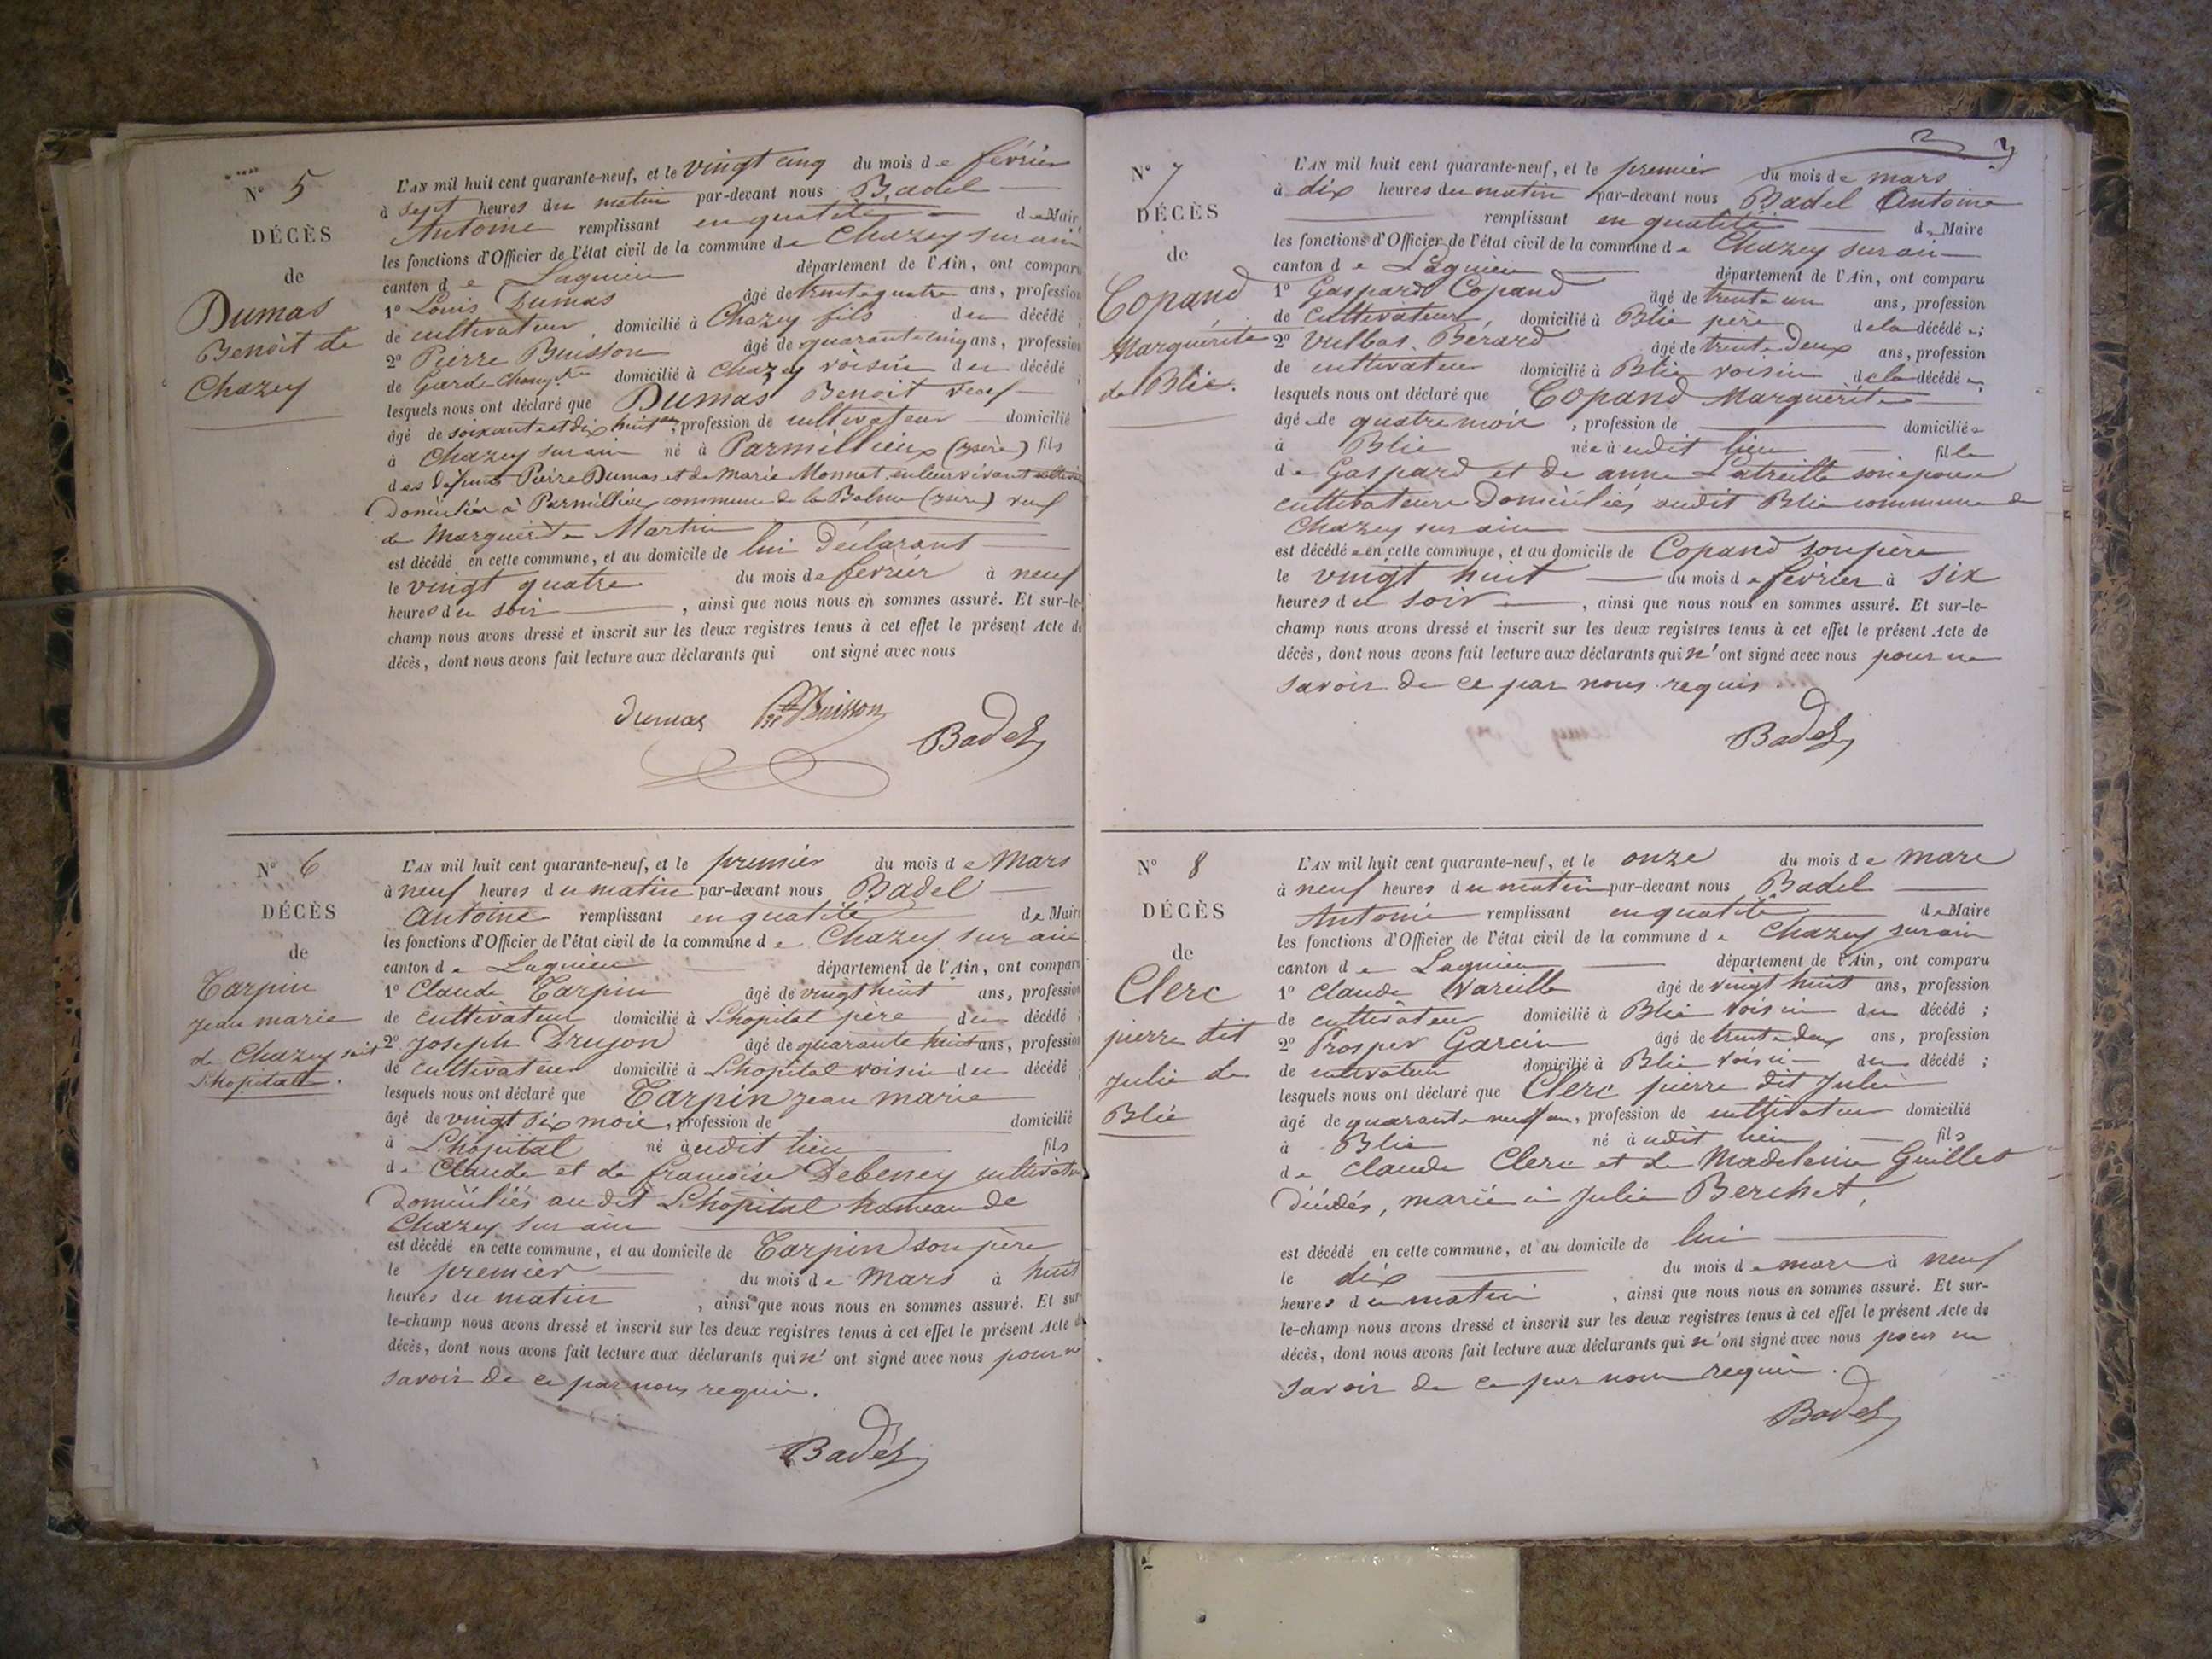 N° 5
DÉCÈS
de
Dumas
Benoit de
Chazey
L'AN mil huit cent quarante-neuf, et le vingt cinq du mois de février
à sept heures du matin par-devant nous Badel
Antoine remplissant en qualité de Maire
les fonctions d'Officier de l'état civil de la commune de Chazey sur ain
canton de Lagnieu département de l'Ain, ont comparu
1° Louis Dumas âgé de trente quatre ans, profession
de cultivateur, domicilié à Chazey fils du décédé ;
2° Pierre Buisson âgé de quarante cinq ans, profession
de Garde Champtre domicilié à Chazey voisin du décédé ;
lesquels nous ont déclaré que Dumas Benoit veuf
âgé de soixante et dix huit ans, profession de cultivateur domicilié
à Chazey sur ain né à Parmillieux (isère) fils
des défunts Pierre Dumas et de Marie Monnet, en leur vivant
domiciliés à Parmillieux commune de la Balme (isère) veuf
de Marguerite Martin
est décédé en cette commune, et au domicile de lui déclarant
le vingt quatre du mois de février à neuf
heures du soir, ainsi que nous nous en sommes assuré. Et sur-le-
champ nous avons dressé et inscrit sur les deux registres tenus à cet effet le présent Acte de
décès, dont nous avons fait lecture aux déclarants qui ont signé avec nous
Dumas Buisson
Badel
N° 6
DÉCÈS
de
Tarpin
Jean marie
de Chazey soit
L'hopital.
L'AN mil huit cent quarante-neuf, et le premier du mois de Mars
à neuf heures du matin par-devant nous Badel
Antoine remplissant en qualité de Maire
les fonctions d'Officier de l'état civil de la commune de Chazey sur ain
canton de Lagnieu département de l'Ain, ont comparu
1° Claude Tarpin âgé de vingt huit ans, profession
de cultivateur domicilié à L'hopital père du décédé ;
2° Joseph Drujon âgé de quarante huit ans, profession
de cultivateur domicilié à L'hopital voisin du décédé ;
lesquels nous ont déclaré que Tarpin Jean marie
âgé de vingt six mois, profession de domicilié
à L'hopital né audit lieu fils
de Claude et de françoise Debeney cultivateurs
domiciliés au dit L'hopital hameau de
Chazey sur ain
est décédé en cette commune, et au domicile de Tarpin son père
le premier du mois de Mars à huit
heures du matin, ainsi que nous nous en sommes assuré. Et sur
le-champ nous avons dressé et inscrit sur les deux registres tenus à cet effet le présent Acte de
décès, dont nous avons fait lecture aux déclarants qui n'ont signé avec nous pour ne
savoir de ce par nous requis.
Badel
3
N° 7
DÉCÈS
de
Copand
Marguérite
de Blié.
L'AN mil huit cent quarante-neuf, et le premier du mois de mars
à dix heures du matin par-devant nous Badel Antoine
remplissant en qualité de Maire
les fonctions d'Officier de l'état civil de la commune de Chazey sur ain
canton de Lagnieu département de l'Ain, ont comparu
1° Gaspard Copand âgé de trente un ans, profession
de Cultivateur, domicilié à Blié père de la décédée ;
2° Vulbas Bérard âgé de trente deux ans, profession
de cultivateur domicilié à Blié voisin de la décédée ;
lesquels nous ont déclaré que Copand Marguérite
âgée de quatre mois, profession de domiciliée
à Blié née audit lieu fille
de Gaspard et de anne Latreille son épouse
cultivateurs domiciliés audit Blié commune de
Chazey sur ain
est décédée en cette commune, et au domicile de Copand son père
le vingt huit du mois de février à six
heures du soir, ainsi que nous nous en sommes assuré. Et sur-le-
champ nous avons dressé et inscrit sur les deux registres tenus à cet effet le présent Acte de
décès, dont nous avons fait lecture aux déclarants qui n'ont signé avec nous pour ne
savoir de ce par nous requis.
Badel
N° 8
DÉCÈS
de
Clerc
pierre dit
Julie de
Blié
L'AN mil huit cent quarante-neuf, et le onze du mois de mars
à neuf heures du matin par-devant nous Badel
Antoine remplissant en qualité de Maire
les fonctions d'Officier de l'état civil de la commune de Chazey sur ain
canton de Lagnieu département de l'Ain, ont comparu
1° Claude Vareille âgé de vingt huit ans, profession
de cultivateur domicilié à Blié voisin du décédé ;
2° Prosper Garcin âgé de trente deux ans, profession
de cultivateur domicilié à Blié voisin du décédé ;
lesquels nous ont déclaré que Clerc pierre dit Julie
âgé de quarante neuf ans, profession de cultivateur domicilié
à Blié né audit lieu fils
de Claude Clerc et de Madeleine Guillet
décédés, marié à Julie Berchet,
est décédé en cette commune, et au domicile de lui
le dix du mois de mars à neuf
heures du matin, ainsi que nous nous en sommes assuré. Et sur-
le-champ nous avons dressé et inscrit sur les deux registres tenus à cet effet le présent Acte de
décès, dont nous avons fait lecture aux déclarants qui n'ont signé avec nous pour ne
savoir de ce par nous requis.
Badel